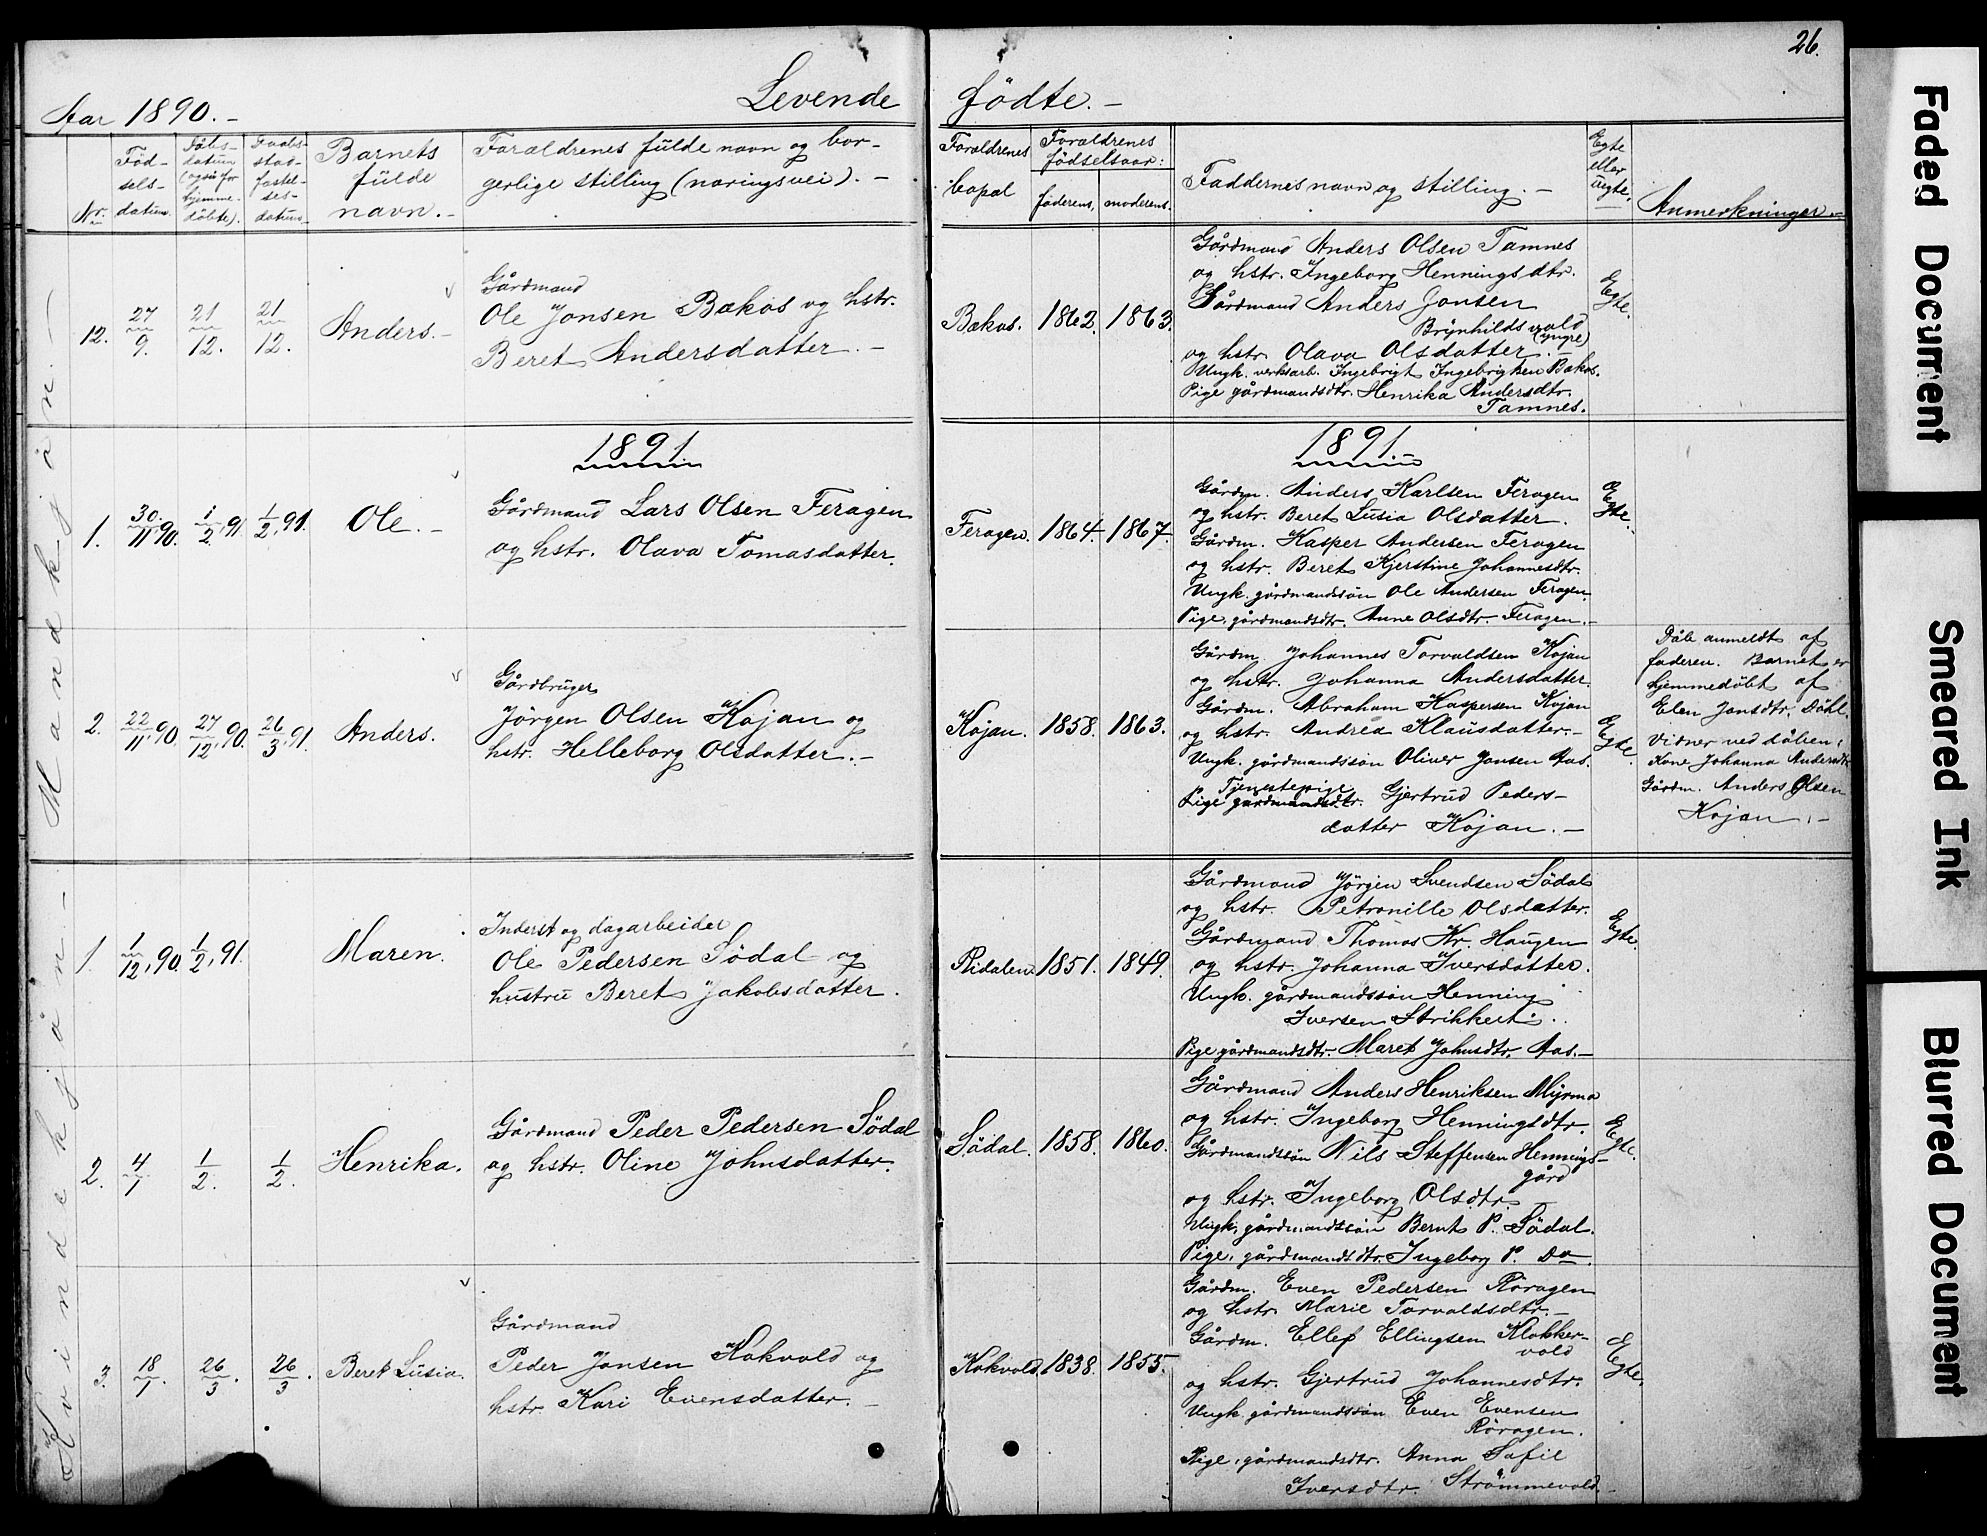 26.
Aar 1890.-
Levende födte.-
Nr.
Fød-
sels-
datum.
Dåbs-
datum
(også for
hjemme-
döbte).
Daabs-
stad-
fæstel-
ses-
datum.
Barnets
fulde
navn.-
Forældrenes fulde navn og bor-
gerlige stilling (næringsvei).-
Forældrenes
bopæl
Forældrenes
födselsaar:
faderens,
moderens.
Faddernes navn og stilling.-
Egte
eller
uegte.
Anmerkninger.-
Mandkjön.-
12.
27/9.
21/12.
21/12.
Anders.-
Gårdmand
Ole Jonsen Bakos og hstr.
Beret Andersdatter.-
Bakos.
1862.
1863.
Gårdmand Anders Olsen Tamnes
og hstr. Ingeborg Henningsdtr.
Gårdmand Anders Jonsen
Brynhildsvold
(yngre)
og hstr. Olava Olsdatter.-
Ungk. verksarb. Ingebrigt Ingebrigtsen Bakos.
Pige gårdmandsdtr. Henrika Andersdtr.
Tamnes.
Egte.
1891
1891
1.
30/11 90.
1/2, 91.
1/2, 91.
Ole.-
Gårdmand Lars Olsen Feragen
og hstr. Olava Tomasdatter.
Feragen.
1864.
1867.
Gårdm. Anders Karlsen Feragen
og hstr. Beret Lusia Olsdatter.
Gårdm. Kasper Andersen Feragen
og hstr. Beret Kjerstine Johannesdtr.
Ungk. gårdmandssön Ole Andersen Feragen.
Pige, gårdmandsdtr. Anne Olsdtr. Feragen.-
Egte.
2.
22/11, 90.
27/12, 90.
26/3, 91.
Anders.
Gårdbruger
Jörgen Olsen Kojan og
hstr. Helleborg Olsdatter.-
Kojan.
1858.
1863.
Gårdm. Johannes Torvaldsen Kojan
og hstr. Johanna Andersdatter.
Gårdm. Abraham Kaspersen Kojan
og hstr. Andrea Klausdatter.-
Ungk. gårdmandssön Oliver Jonsen Aas.
Tjenestepige
Pige gårdmandsdtr. Gjertrud Peders-
datter Kojan.-
Egte.
Dåb anmeldt af
faderen. Barnet er
hjemmedöbt af
Elen Jonsdtr. Dahl.
Vidner ved dåben:
Kone Johanna Andersdtr
Gårdm. Anders Olsen
Kojan.-
Kvindekjön.-
1.
1/12, 90.
1/2, 91.
Maren.
Inderst og dagarbeider
Ole Pedersen Södal og
hustru Beret Jakobsdatter.
Ridalen.
1851.
1849.
Gårdmand Jörgen Svendsen Södal
og hstr. Petronille Olsdatter.
Gårdmand Thomas Kr. Haugen
og hstr. Johanna Iversdatter.
Ungk. gårdmandssön Henning
Iversen Strikkert.
Pige gårdmandsdtr. Maret Johnsdtr. Aas.-
Egte.
2.
4/1
1/2
1/2.
Henrika.
Gårdmand Peder Pedersen Södal
og hstr. Oline Johnsdatter.
Södal.
1858.
1860.
Gårdmand Anders Henriksen Myrmo
og hstr. Ingeborg Henningsdtr.
Gårdmandssön Nils Steffensen Hennings-
gård
og hstr. Ingeborg Olsdtr.
Ungk, gårdmandssön Bernt P. Södal.
Pige, gårdmandsdtr. Ingeborg P. Do.
Egte.
3.
18/1.
26/3.
26/3.
Beret Lusia.
Gårdmand
Peder Jonsen Kokvold og
hstr. Kari Evensdatter.-
Kokvold.
1838.
1855.
Gårdm. Even Pedersen Röragen
og hstr. Marie Torvaldsdtr.-
Gårdm. Ellef Ellingsen Klokker-
vold
og hstr. Gjertrud Johannesdtr.
Ungk. gårdmandssön Even Evensen
Röragen.
Pige, gårdmandsdtr. Anna Safie
Iversdtr. Strömmevold.-
Egte.
Faded Document
Smeared Ink
Blurred Document